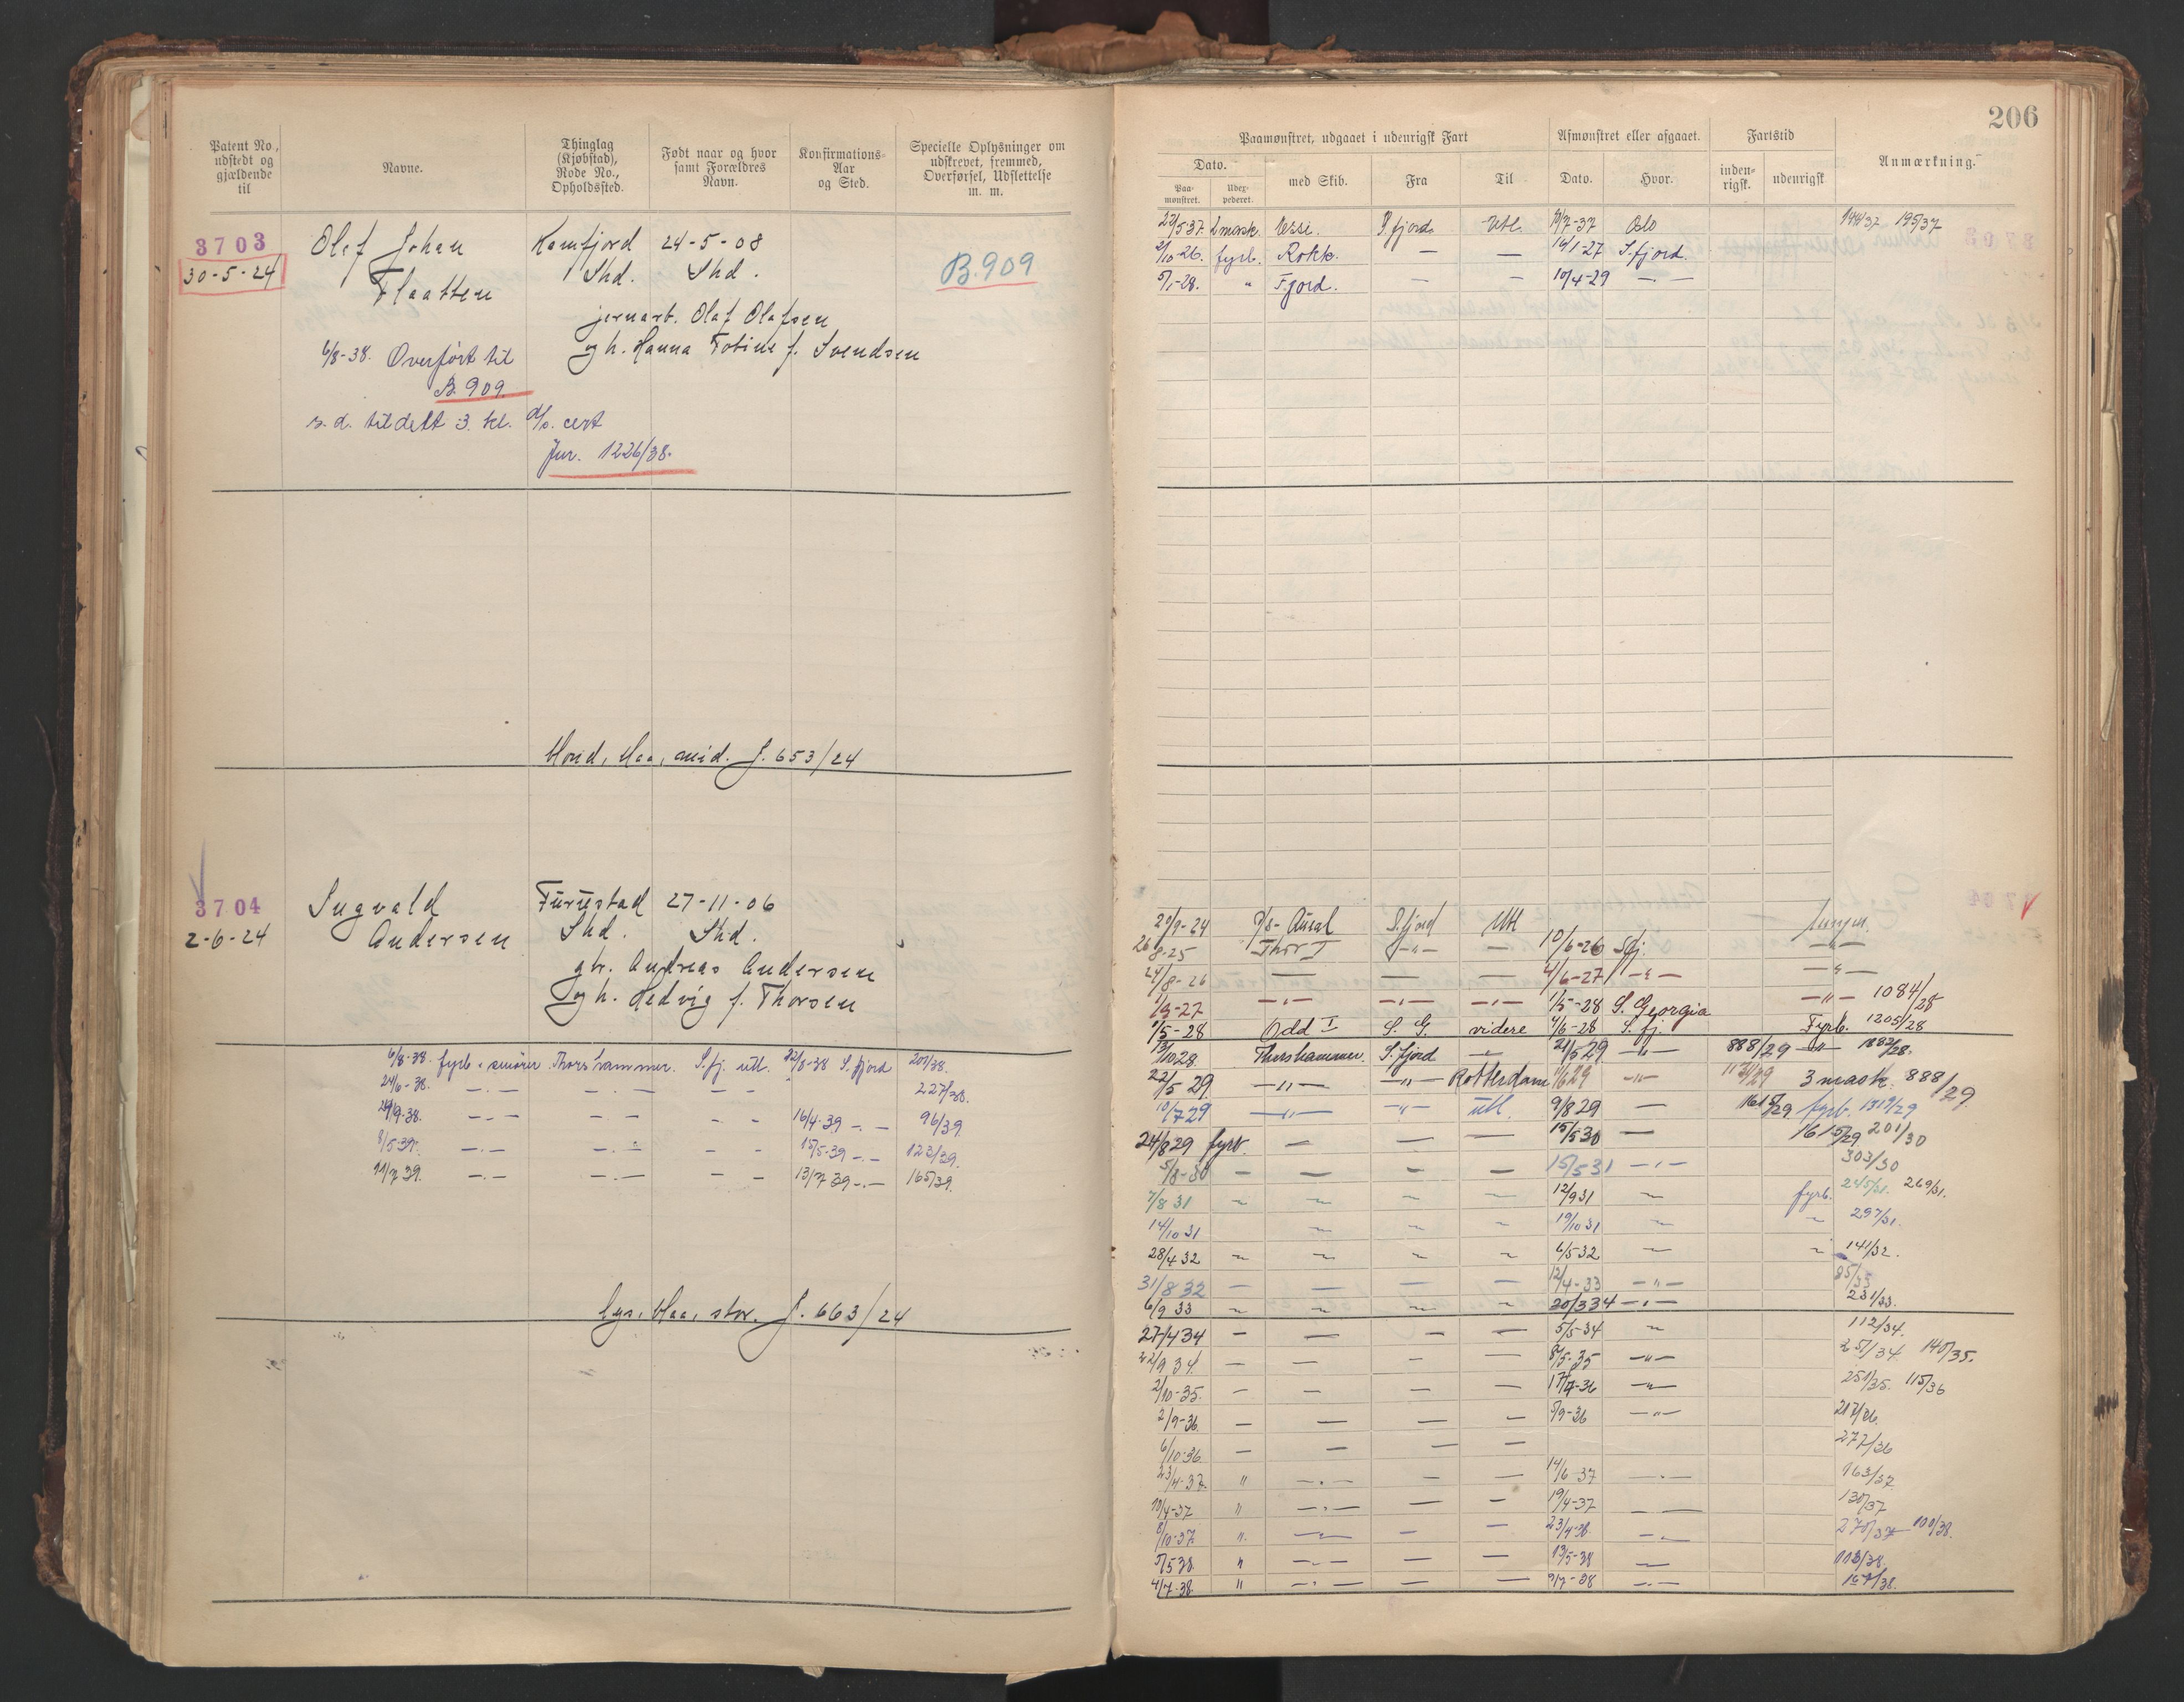 206
Patent No.,
udstedt og
gjældende
til
Navne.
Thinglag
(Kjøbstad),
Rode No.,
Opholdssted.
Født naar og hvor
samt Forældres
Navn.
Konfirmations-
Aar
og Sted.
Specielle Oplysninger om
udskrevet, fremmed,
Overførsel, Udslettelse
m. m.
3703
30-5-24
Olaf Johan
Flaatten
Kamfjord 24-5-08
Shd. Shd.
jernarb. Olaf Olafsen
og h. Hanna Tobine f. Svendsen
B. 909
6/8-38. Overført til
B. 909.
s. d. tildelt 3. kl. d/s. cert
Jur. 1226/38.
J. 653/24
3704
2-6-24
Ingvald
Andersen
Furustad 27-11-06
Shd. Shd.
gbr. Andreas Andersen
og h. Hedvig f. Thorsen
6/8-38. fyrb. smører Thorshammer. S.fj. utl. 22/8-38 S.fjord 201/38.
24/6-38. -.- - - - - 227/38.
29/9-38. -.- - - - - 16/4-39 -.- 96/39.
8/5-39. -.- -.- - - 15/5-39 -.- 123/39.
11/7 39. -.- -.- - - 13/7 39 -.- 165/39.
J. 663/24
Paamønstret, udgaaet i udenrigsk Fart
Afmønstret eller afgaaet.
Fartstid
Anmærkning.
Dato.
Paa-
mønstret.
Udex-
pederet.
med Skib.
Fra
Til
Dato.
Hvor.
inden-
rigsk.
udenrigsk
22/5 37. 2 mask. Ussi. S.fjord Utl. 10/7-37 Oslo 144/37 195/37
2/10-26. fyrb. Rokk. — — 14/1-27 S.fjord.
5/1-28. " Fjord. — — 10/4-29 —
20/9-24 D/s- Aural S.fjord Utl
26/8-25 " Thor I -"- — 10/6-26 Sfj. -"-
24/8-26 — — — 4/6-27 -"- -"-
1/9-27 -"- -"- -"- 1/5-28 S. Georgia -"- 1084/28
1/5-28 Odd I S. G. videre 4/6-28 S. fj. Fyrb. 1205/28
13/10 28. Thorshammer. S.fjord — 21/5 29 -"- 888/29 -"- 1882/28.
22/5 29. -"- -"- Rotterdam 11/6 29 -"- 1131/29 3 mask. 888/29
10/7 29 -"- -"- Utl. 9/8 29 — 1615/29. fyrb. 1319/29
24/8 29 fyrb. — — — 15/5 30 — 1615/29 201/30
5/8-30 — — — — 15/5 31 -"- 303/30
7/8 31 ~ ~ ~ ~ 12/9 31 ~ fyrb. 245/31. 269/31.
14/10 31 ~ ~ ~ 19/10 31 ~ ~ 297/31.
28/4 32 ~ ~ ~ ~ 6/5-32 ~ ~ 141/32.
31/8 32 — — — — 12/4-33 -"- 85/33
6/9 33 ~ ~ ~ ~ 20/3 34 -"- 231/33.
27/4 34 — — — — 5/5-34 ~ 112/34.
22/9 34. — — — — 8/5-35 -"- 251/34. 140/35.
2/10-35. — — — — 17/4-36 -"- 251/35. 115/36
2/9-36. — — — — 5/9-36 -"- 217/36.
6/10-36. — — — — 277/36
23/4-37. " -.- — — 14/6-37 -.- 163/37
10/4-37 " -.- — — 19/4-37 — 130/37
8/10-37. " — — — 23/4-38. — 270/37 100/38.
5/5 38. " -.- — — 13/5-38 — 113/38.
4/7-38. " -.- — — 9/7-38 -.- 167/38.